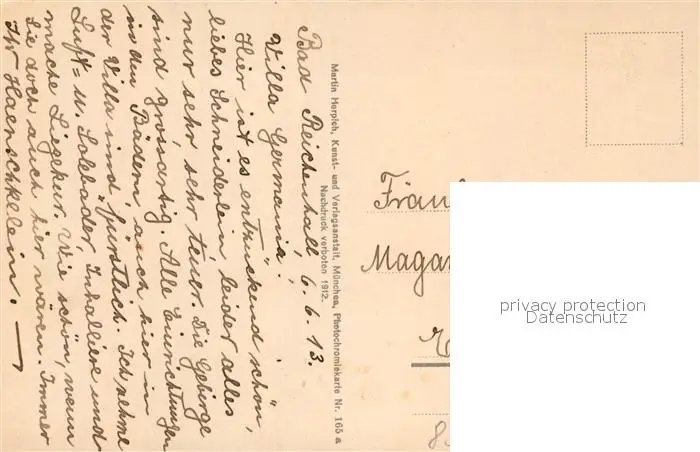 Bad Reichenhall, 6. 6. 13.
Villa Germania.
Hier ist es entzückend schön,
liebes Schneiderlein, leider alles
nur sehr, sehr teuer. Die Gebirge
sind grossartig. Alle Einrichtungen
in den Bädern auch hier in
der Villa sind fürstlich. Ich nehme
Luft= u. Solebäder, Inhalliere und
mache Liegekur. Wie schön, wenn
Sie doch auch hier wären. Immer
Ihr Haenschklein. —
Martin Herpich, Kunst- und Verlagsanstalt, München, Photochromiekarte Nr. 165 a
Nachdruck verboten 1912.
Fräul
Magar
8
privacy protection
Datenschutz